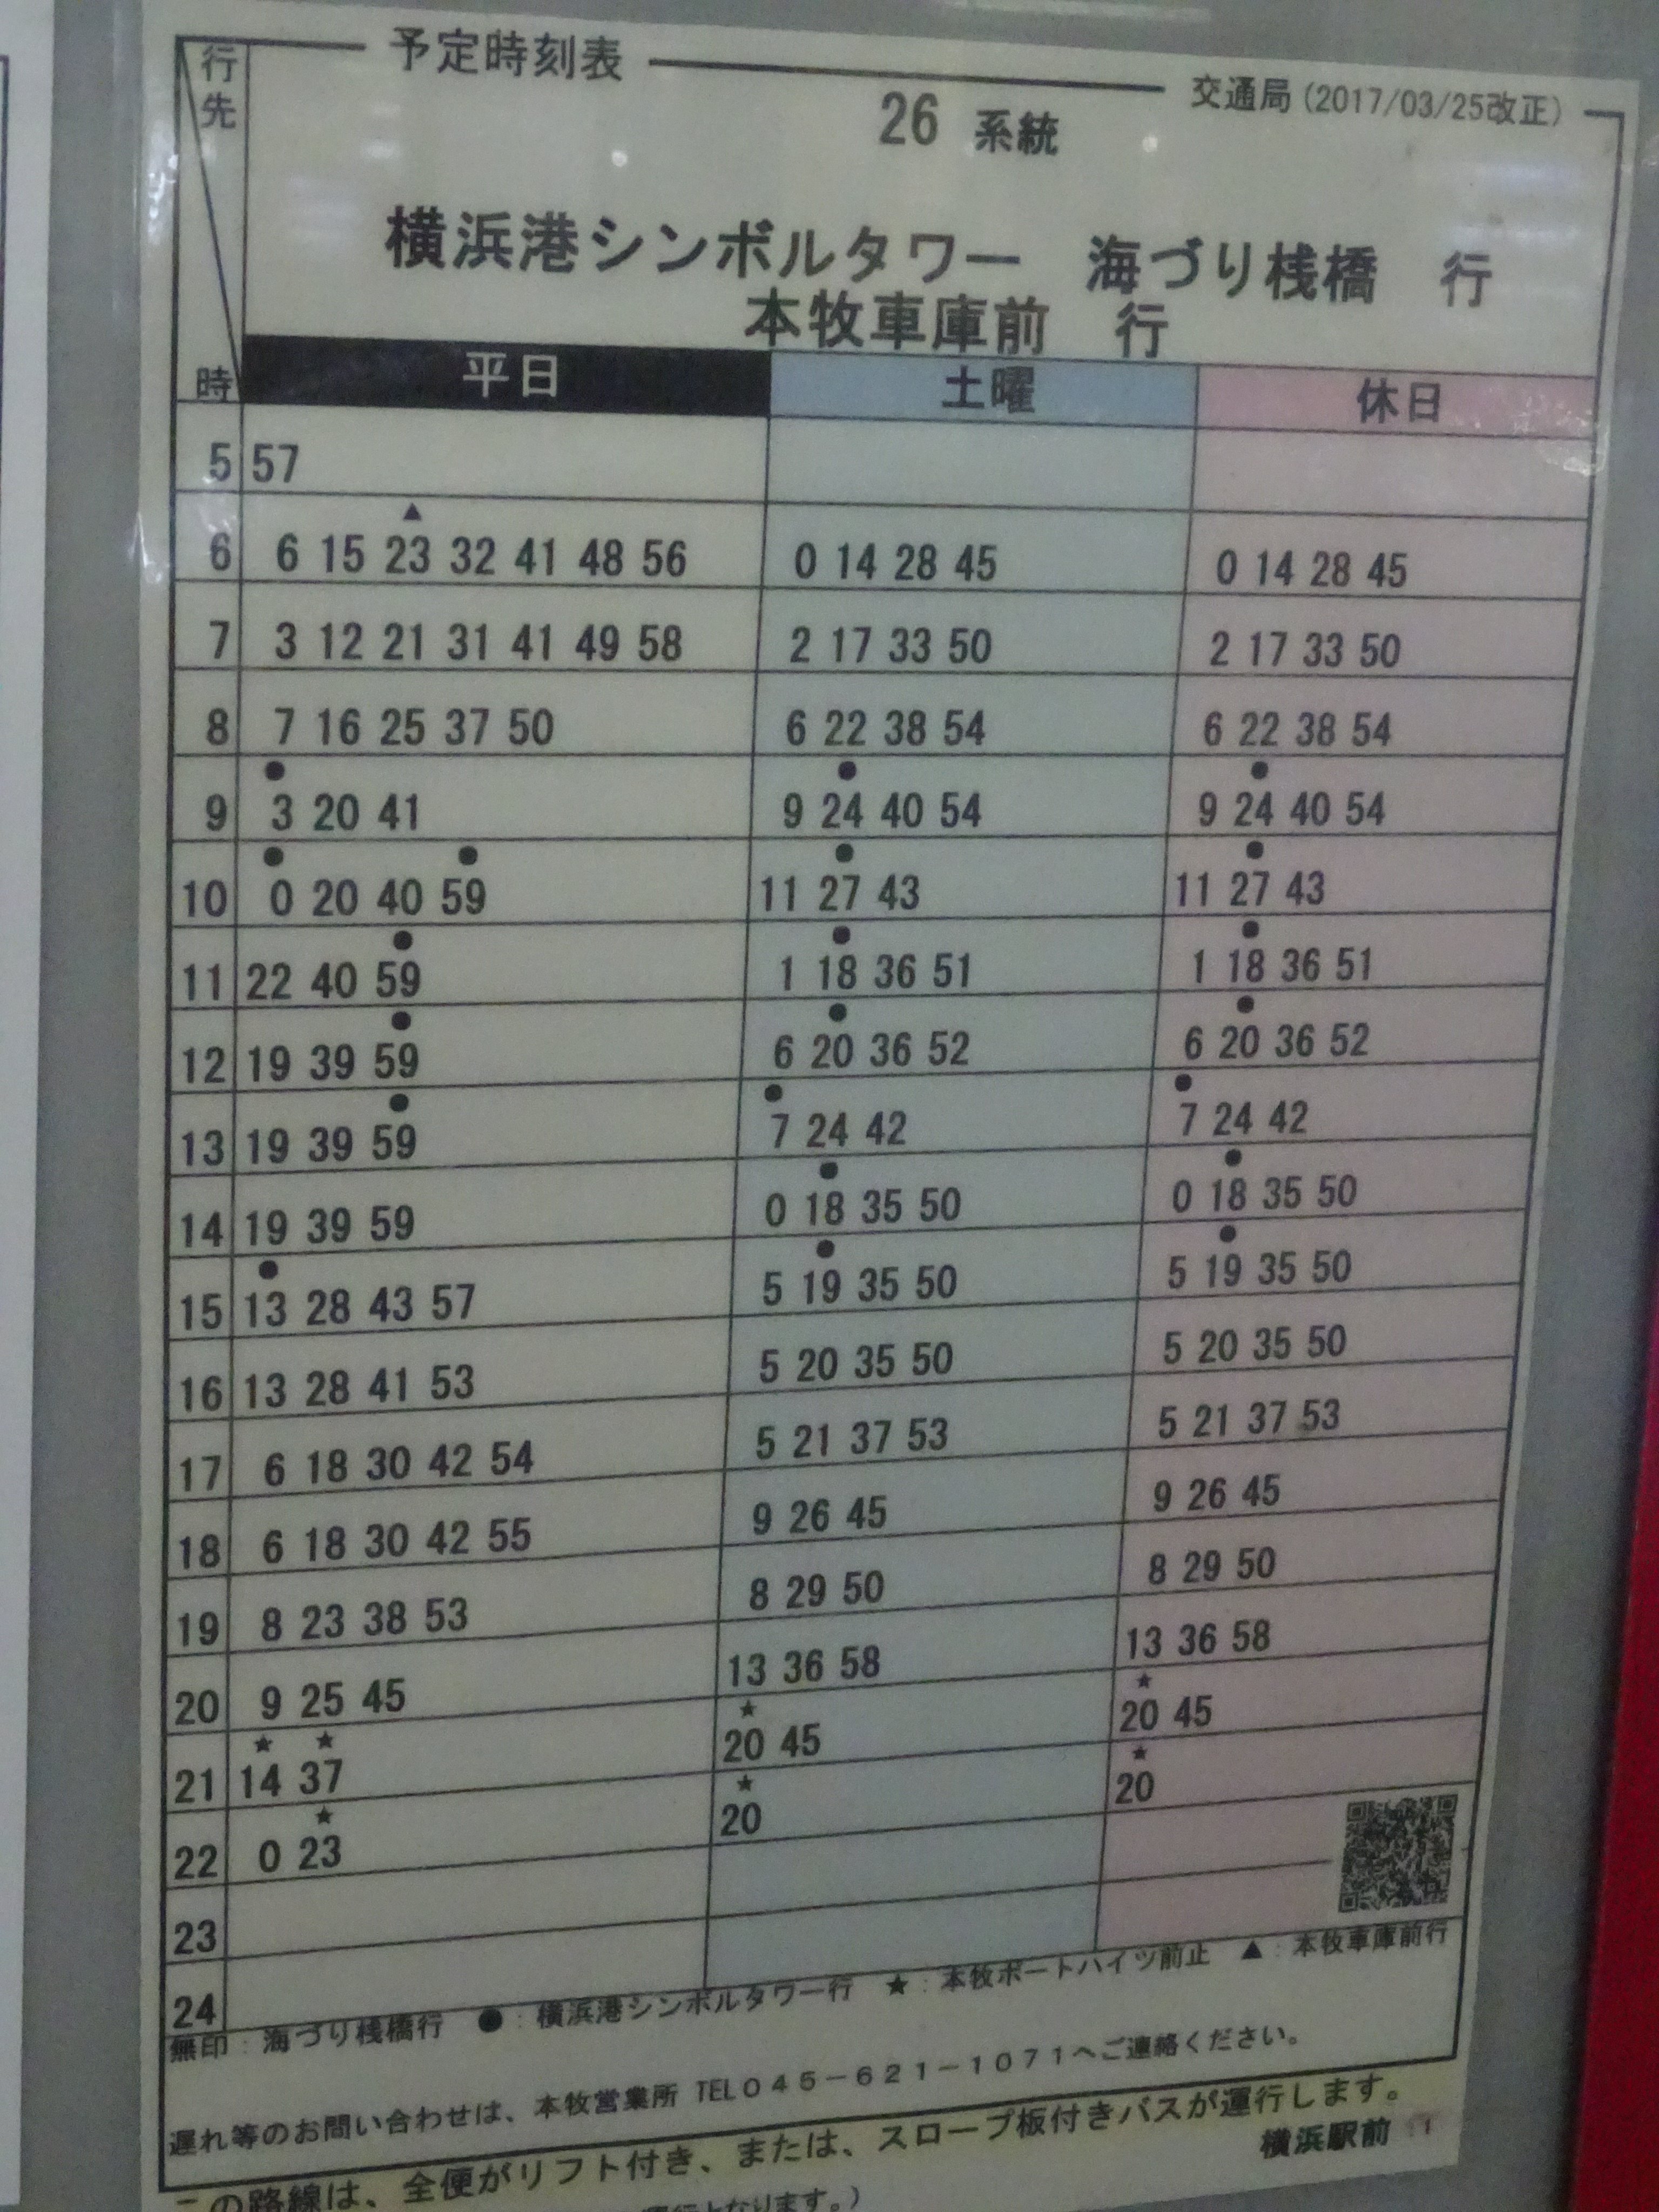 予定時刻表
交通局(2017/03/25改正)
26 系統
横浜港シンボルタワー 海づり桟橋 行
本牧車庫前 行
行先
時 平日 土曜 休日
5 57
▲
6 6 15 23 32 41 48 56 0 14 28 45 0 14 28 45
7 3 12 21 31 41 49 58 2 17 33 50 2 17 33 50
8 7 16 25 37 50 6 22 38 54 6 22 38 54
● ● ●
9 3 20 41 9 24 40 54 9 24 40 54
● ● ● ●
10 0 20 40 59 11 27 43 11 27 43
● ● ●
11 22 40 59 1 18 36 51 1 18 36 51
● ● ●
12 19 39 59 6 20 36 52 6 20 36 52
● ● ●
13 19 39 59 7 24 42 7 24 42
● ●
14 19 39 59 0 18 35 50 0 18 35 50
● ● ●
15 13 28 43 57 5 19 35 50 5 19 35 50
16 13 28 41 53 5 20 35 50 5 20 35 50
17 6 18 30 42 54 5 21 37 53 5 21 37 53
18 6 18 30 42 55 9 26 45 9 26 45
19 8 23 38 53 8 29 50 8 29 50
20 9 25 45 13 36 58 13 36 58
★ ★ ★ ★
21 14 37 20 45 20 45
★ ★ ★
22 0 23 20 20
23
24
無印:海づり桟橋行 ●:横浜港シンボルタワー行 ★:本牧ポートハイツ前止 ▲:本牧車庫前行
遅れ等のお問い合わせは、本牧営業所 TEL045-621-1071へご連絡ください。
この路線は、全便がリフト付き、または、スロープ板付きバスが運行します。
横浜駅前
運行となります。)